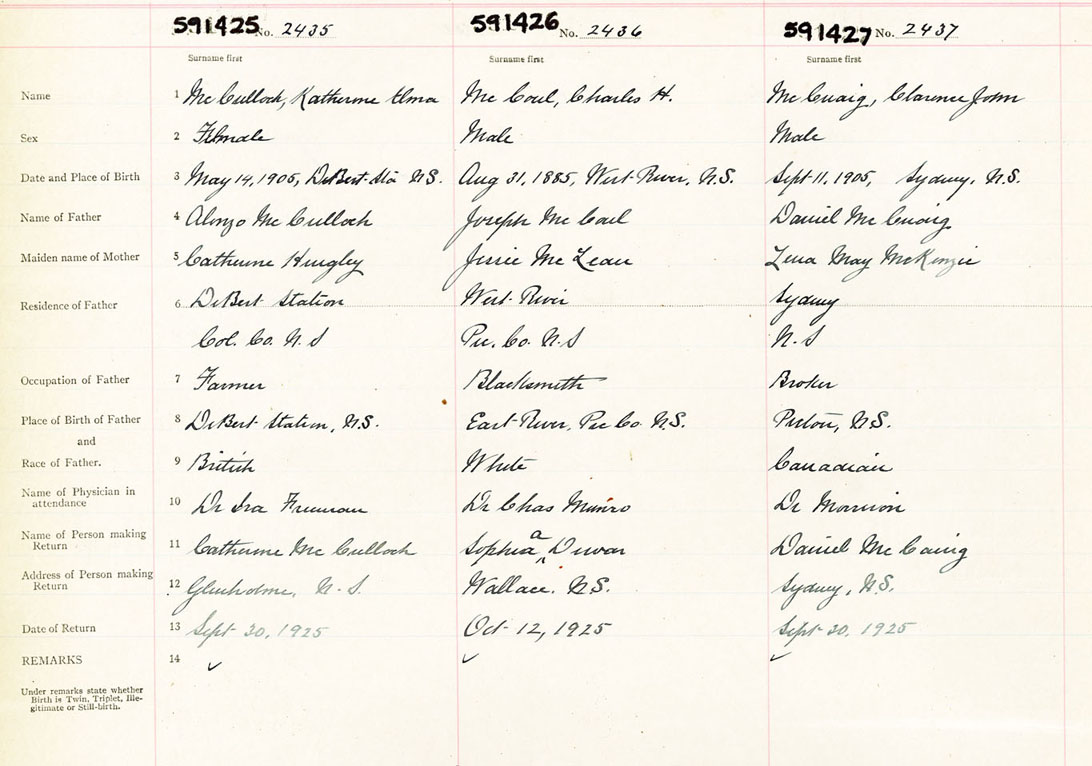 591425 No. 2435 591426 No. 2436 591427 No. 2437
Surname first Surname first Surname first
Name 1 McCulloch, Katherine Alma McCoul, Charles H. McCuaig, Clarence John
Sex 2 Female Male Male
Date and Place of Birth 3 May 14, 1905, DeBert Sta N.S. Aug 31, 1885, West River, N.S. Sept 11, 1905, Sydney, N.S.
Name of Father 4 Alonzo McCulloch Joseph McCoul Daniel McCuaig
Maiden name of Mother 5 Catherine Jessie McLean Lena May McKenzie
Residence of Father 6 DeBert Station West River Sydney
Col. Co. N.S Pic. Co. N.S N.S
Occupation of Father 7 Farmer Blacksmith Broker
Place of Birth of Father 8 DeBert Station, N.S. East River, Pic Co. N.S. Pictou, N.S.
and
Race of Father. 9 British White Canadian
Name of Physician in
attendance 10 Dr Ira Freeman Dr Chas Munro Dr Morrison
Name of Person making
Return 11 Catherine McCulloch Sophia a Dewar Daniel McCuaig
Address of Person making
Return 12 Glenholme, N.S. Wallace. N.S. Sydney, N.S.
Date of Return 13 Sept 30, 1925 Oct 12, 1925 Sept 30, 1925
REMARKS 14 ✓ ✓ ✓
Under remarks state whether
Birth is Twin, Triplet, Ille-
gitimate or Still-birth.